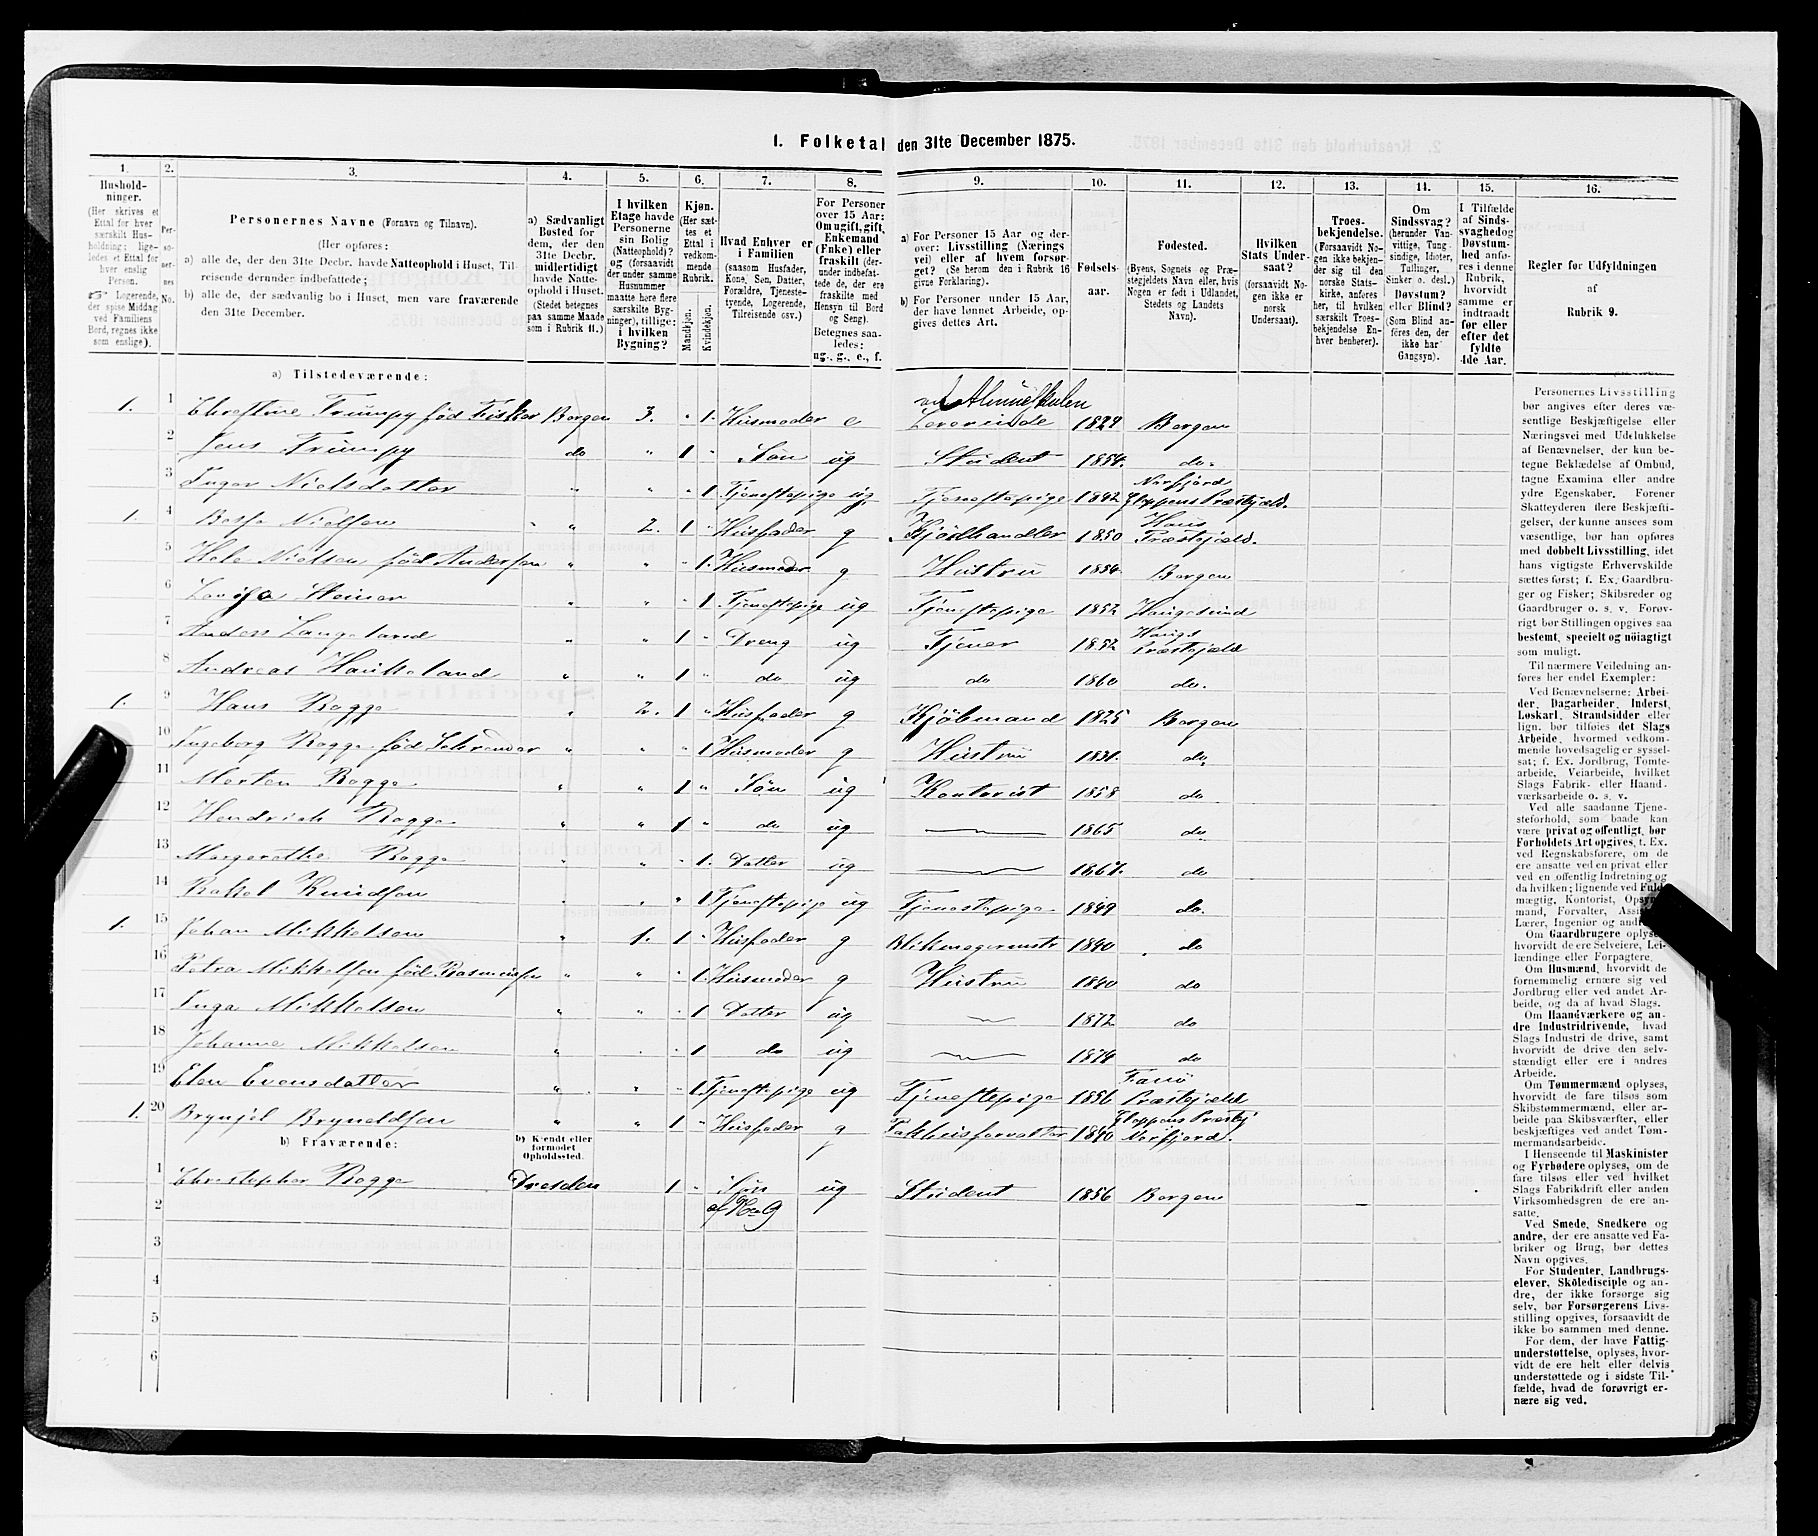 1. Folketal den 31te December 1875.
1.
Hushold-
ninger.
(Her skrives et
Ettal for hver
særskilt Hus-
holdning; lige-
ledes et Ettal for
hver enslig
Person.
☞ Logerende,
der spise Middag
ved Familiens
Bord, regnes ikke
som enslige).
2.
Per-
so-
ner-
nes
No.
3.
Personernes Navne (Fornavn og Tilnavn).
(Her opføres:
a) alle de, der den 31te Decbr. havde Natteophold i Huset, Til-
reisende derunder indbefattede;
b) alle de, der sædvanlig bo i Huset, men vare fraværende
den 31te December.
4.
a) Sædvanligt
Bosted for
dem, der den
31te Decbr.
midlertidigt
havde Natte-
ophold i Huset.
(Stedet betegnes
paa samme Maade
som i Rubrik 11.)
5.
I hvilken
Etage havde
Personerne
sin Bolig
(Natteophold)?
og (forsaavidt
der under samme
Husnummer
maatte høre flere
særskilte Byg-
ninger), tillige:
i hvilken
Bygning?
6.
Kjøn.
(Her sæt-
tes et
Ettal i
vedkom-
mende
Rubrik.
Mandkjøn.
Kvindekjøn.
7.
Hvad Enhver er
i Familien
(saasom Husfader,
Kone, Søn, Datter,
Forældre, Tjeneste-
tyende, Logerende,
Tilreisende osv.)
8.
For Personer
over 15 Aar:
Om ugift, gift,
Enkemand
(Enke) eller
fraskilt (der-
under indbefat-
tede de, der ere
fraskilte med
Hensyn til Bord
og Seng).
Betegnes saa-
ledes:
ug., g., e., f.
9.
a) For Personer 15 Aar og der-
over: Livsstilling (Nærings
vei) eller af hvem forsør-
get? (Se herom den i Rubrik 16
givne Forklaring).
b) For Personer under 15 Aar,
der have lønnet Arbeide, op-
gives dettes Art.
10.
Fødsels-
aar.
11.
Fødested.
(Byens, Sognets og Præ-
stegjeldets Navn eller, hvis
Nogen er født i Udlandet,
Stedets og Landets
Navn).
12.
Hvilken
Stats Under-
saat?
(forsaavidt No-
gen ikke er
norsk
Undersaat).
13.
Troes-
bekjendelse.
(Forsaavidt No-
gen ikke bekjen-
der sig til den
norske Stats-
kirke, anføres
her, til hvilken
særskilt Troes-
bekjendelse En-
hver henhører).
14.
Om
Sindssvag?
(herunder Van-
vittige, Tung-
sindige, Idioter,
Tullinger,
Sinker o. desl.)
Døvstum?
eller Blind?
(Som Blind an-
føres den, der
ikke har
Gangsyn).
15.
I Tilfælde
af Sinds-
svaghedog
Døvstum-
hed anfø-
res i denne
Rubrik,
hvorvidt
samme er
indtraadt
før eller
efter det
fyldte
4de Aar.
16.
Regler for Udfyldningen
af
Rubrik 9.
a) Tilstedeværende:
1. 1 Christine Trumpy født Fisker Bergen 3. " 1. Husmoder e ved Almueskolen Lærerinde 1829 Bergen
2 Jens Trumpy do " 1 " Søn ug Student 1854. do.
3 Inger Nielsdatter " " " 1 Tjenestepige ug. Tjenestepige 1842
1. 4 Nielsen " 2. 1 " Husfader g Kjødhandler 1850 Haus Præstejeld.
5 Nielsen født Andersen " " " 1. Husmoder g Hustru 1854. Bergen
6 Lovise Steiner " " " 1 Tjenestepige ug Tjenestepige 1852 Haugesund
7 Anders Langeland " " 1 " Dreng ug Tjener 1852 Præstejeld
8 Andreas Haukeland " " 1 " do ug do 1860 do.
1. 9 Hans Rogge " 2. 1 " Husfader g Kjøbmand 1825 Bergen
10 Ingeborg Rogge født " " " 1 Husmoder g Hustru 1831. do.
11 Morten Rogge " " 1 " Søn ug Kontorist 1858 do
12 Hendrich Rogge " " 1 " do ug — 1865 do
13 Margrethe Rogge " " " 1. Datter ug — 1867. do
14 Rakel Knudsen " " " 1 Tjenestepige ug Tjenestepige 1849 do.
1. 15 Johan Mikkelsen " 1. 1 " Husfader g Blikmagermstr 1840 do
16 Petra Mikkelsen født Rasmussen " " " 1. Husmoder g Hustru 1840 do
17 Inga Mikkelsen " " " 1 Datter ug — 1872 do
18 Johanne Mikkelsen " " " 1 do ug — 1874 do
19 Elen Evensdatter " " " 1 Tjenestepige ug Tjenestepige 1856 Præstejeld
1. 20 Brynjel Bryneldsen " " 1 Husfader g Pakhusforvalter 1840
b) Fraværende:
b) Kjendt eller
formodet
Opholdssted.
1 Christopher Rogge Dresden 1 Søn af No 9 ug Student 1856 Bergen
2
3
4
5
6
Personernes Livsstilling
bør angives efter deres væ-
sentlige Beskjæftigelse eller
Næringsvei med Udelukkelse
af Benævnelser, der kun be-
tegne Beklædelse af Ombud,
tagne Examina eller andre
ydre Egenskaber. Forener
Skatteyderen flere Beskjæfti-
gelser, der kunne ansees som
væsentlige, bør han opføres
med dobbelt Livsstilling, idet
hans vigtigste Erhvervskilde
sættes først; f. Ex. Gaardbru-
ger og Fisker; Skibsreder og
Gaardbruger o. s. v. Forøv-
rigt bør Stillingen opgives saa
bestemt, specielt og nøiagtigt
som muligt.
Til nærmere Veiledning an-
føres her endel Exempler:
Ved Benævnelserne: Arbei-
der, Dagarbeider, Inderst,
Løskarl, Strandsidder eller
lign. bør tilføies det Slags
Arbeide, hvormed vedkom-
mende hovedsagelig er syssel-
sat; f. Ex. Jordbrug, Tomte-
arbeide, Veiarbeide, hvilket
Slags Fabrik- eller Haand-
værksarbeide o. s. v.
Ved alle saadanne Tjene-
steforhold, som baade kan
være privat og offentligt, bør
Forholdets Art opgives, t. Ex.
ved Regnskabsførere, om de
ere ansatte ved en privat eller
ved en offentlig Indretning og
da hvilken; lignende ved Fuld-
mægtig, Kontorist, Opsyns-
mand, Forvalter,
Lærer, Ingeniør og
Om Gaardbrugere oplyses
hvorvidt de ere Selveiere, Lei-
lændinge eller Forpagtere.
Om Husmænd, hvorvidt de
fornemmelig ernære sig ved
Jordbrug eller ved andet Ar-
beide, og da af hvad Slags.
Om Haandværkere og an-
dre Industridrivende, hvad
Slags Industri de drive, samt
hvorvidt de drive den selv-
stændigt eller ere i andres
Arbeide.
Om Tømmermænd oplyses,
hvorvidt de fare tilsøs som
Skibstømmermænd, eller ar-
beide paa Skibsværfter, eller
beskjæftiges ved andet Tøm-
mermandsarbeide.
I Henseende til Maskinister
og Fyrbødere oplyses, om de
fare tilsøs eller ved hvilket
Slags Fabrikdrift eller anden
Virksomhedsgren de ere an-
satte.
Ved Smede, Snedkere og
andre, der ere ansatte ved Fa-
briker og Brug, bør dettes
Navn opgives.
For Studenter, Landbrugs-
elever, Skoledisciple og an-
dre, der ikke forsørge sig
selv, bør Forsørgerens Livs-
stilling opgives, forsaavidt de
ikke bo sammen med denne.
For dem, der have Fattig-
understøttelse, oplyses, hvor-
vidt de ere helt eller delvis
understøttede og i sidste Til-
fælde, hvad de forøvrigt er-
nære sig ved.